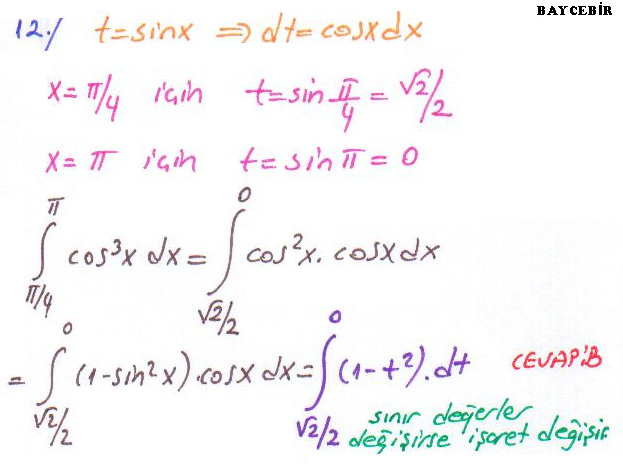 BAYCEBİR
12./ t=sinx ⇒ dt=cosxdx
x=π/4 için t=sin π/4 = √2/2
x=π için t=sinπ=0
∫_{π/4}^{π} cos³x dx = ∫_{√2/2}^{0} cos²x.cosxdx
= ∫_{√2/2}^{0} (1-sin²x).cosx dx = ∫_{√2/2}^{0} (1-t²).dt CEVAP:B
sınır değerler
değişirse işaret değişir